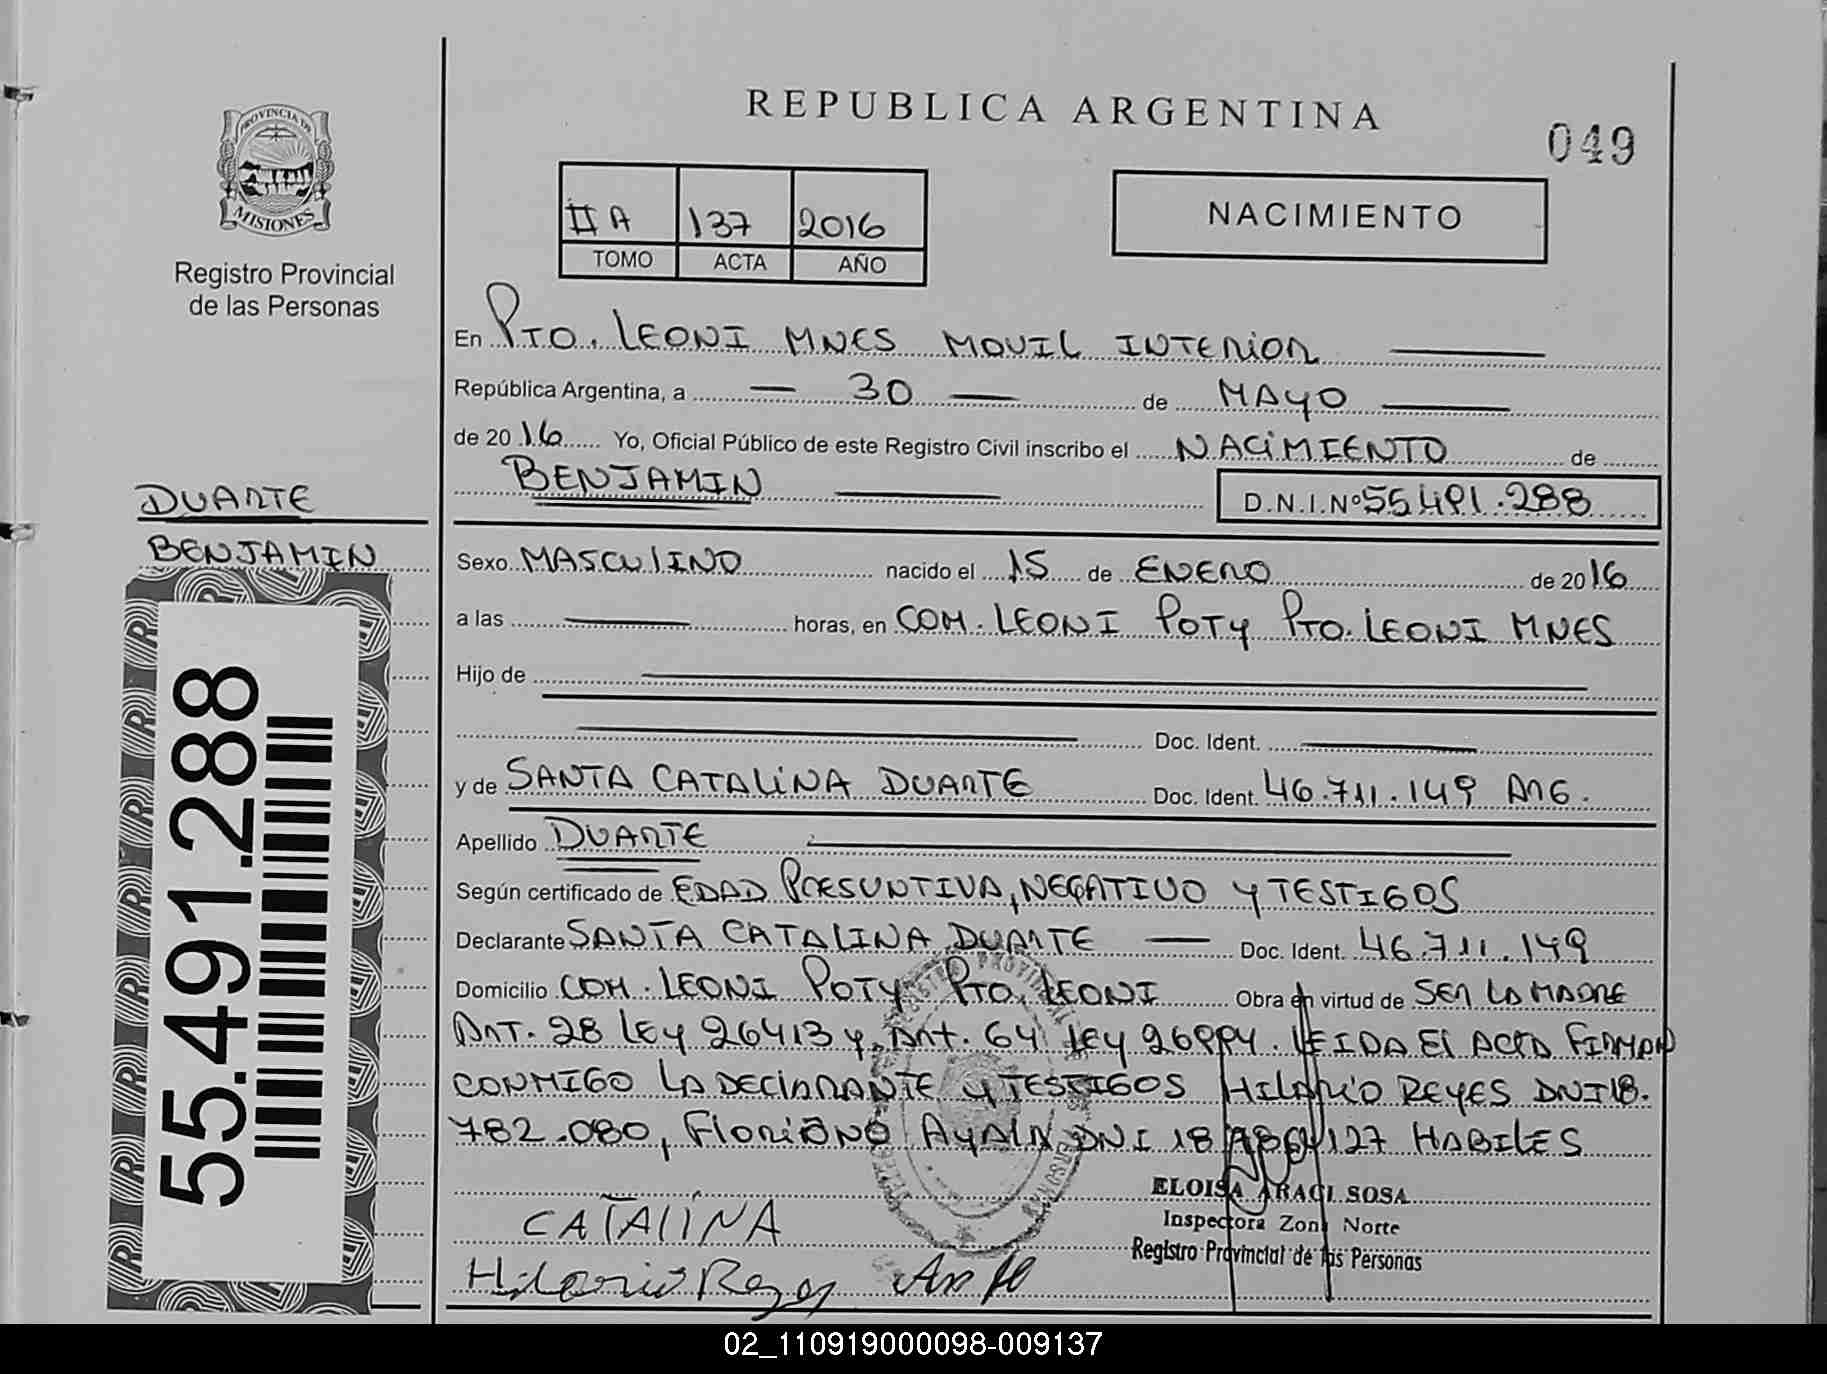 REPUBLICA ARGENTINA
049
PROVINCIA DE
MISIONES
Registro Provincial
de las Personas
II A 137 2016
TOMO ACTA AÑO
NACIMIENTO
En PTO. LEONI MNES MOVIL INTERIOR
República Argentina, a — 30 — de MAYO —
de 20 16 Yo, Oficial Público de este Registro Civil inscribo el NACIMIENTO de
BENJAMIN — D.N.I.Nº 55.491.288
DUARTE
BENJAMIN
55.491.288
Sexo MASCULINO nacido el 15 de ENERO de 2016
a las — horas, en COM. LEONI POTY PTO. LEONI MNES
Hijo de —
— Doc. Ident. —
y de SANTA CATALINA DUARTE Doc. Ident. 46.711.149 ARG.
Apellido DUARTE —
Según certificado de EDAD PRESUNTIVA, NEGATIVO Y TESTIGOS
Declarante SANTA CATALINA DUARTE — Doc. Ident. 46.711.149
Domicilio COM. LEONI POTY PTO. LEONI Obra en virtud de SER LA MADRE
ART. 28 LEY 26413 y ART. 64 LEY 26994. LEIDA El ACTA FIRMAN
CONMIGO LA DECLARANTE y TESTIGOS HILARIO REYES DNI 18.
782.080, FloriANO AyAlA DNI 18 127 HABILES
ELOISA ARACI SOSA
Inspectora Zona Norte
Registro Provincial de las Personas
CATALINA
Hilario Reyes
02_110919000098-009137